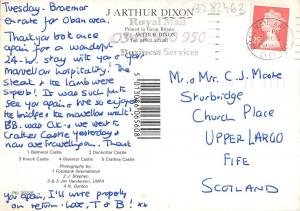 Tuesday: Braemar
en route for Oban area.
Thank you both once
again for a wonderful
24-hr. stay with your
marvellous hospitality. The
steak & the lamb were
superb! It was such fun to
see you again & we so enjoyed
the bridge & the marvellous walk!
B.B. was O.K & we went to
Crathes Castle yesterday &
now are travelling on. Thank
you again, I'll write properly
on return - Love, T & B! xx
J ARTHUR DIXON
Royal Mail
Printed in Great Britain
by J. ARTHUR DIXON
950
Business Services
5 013546 006508
1 Balmoral Castle
2 Dunnottar Castle
3 Knock Castle
4 Braemar Castle
5 Crathes Castle
Photography by:
1 Fotobank International
2 J. Stephen
3 & 5 Jim Henderson, LMPA
4 N. Gordon
Mr & Mrs C.J. Moate
Sturbridge
Church Place
UPPER LARGO
FIFE
SCOTLAND